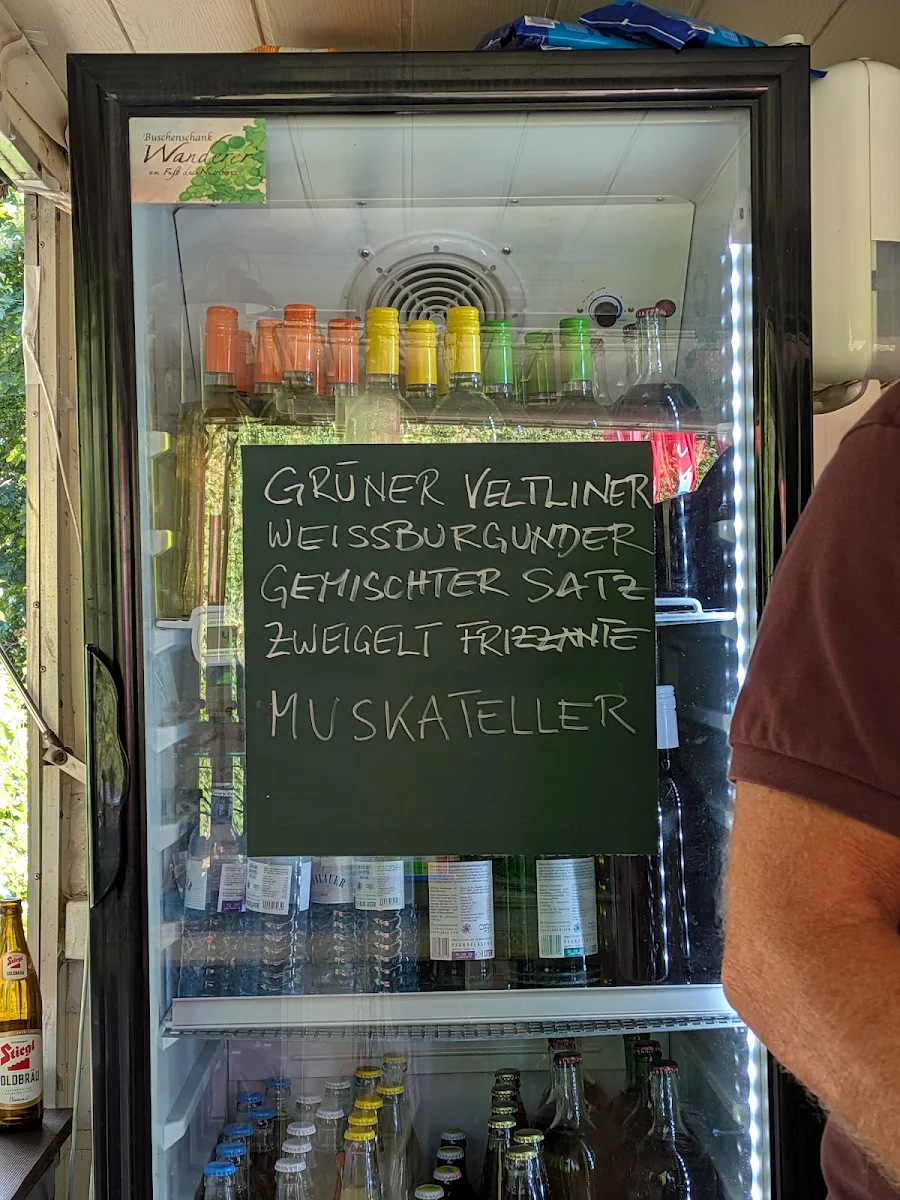 Buschenschank
Wanderer
am Fuß des Nussbergs
GRÜNER VELTLINER
WEISSBURGUNDER
GEMISCHTER SATZ
ZWEIGELT FRIZZANTE
MUSKATELLER
Stiegl
Stiegl
OLDBRÄU